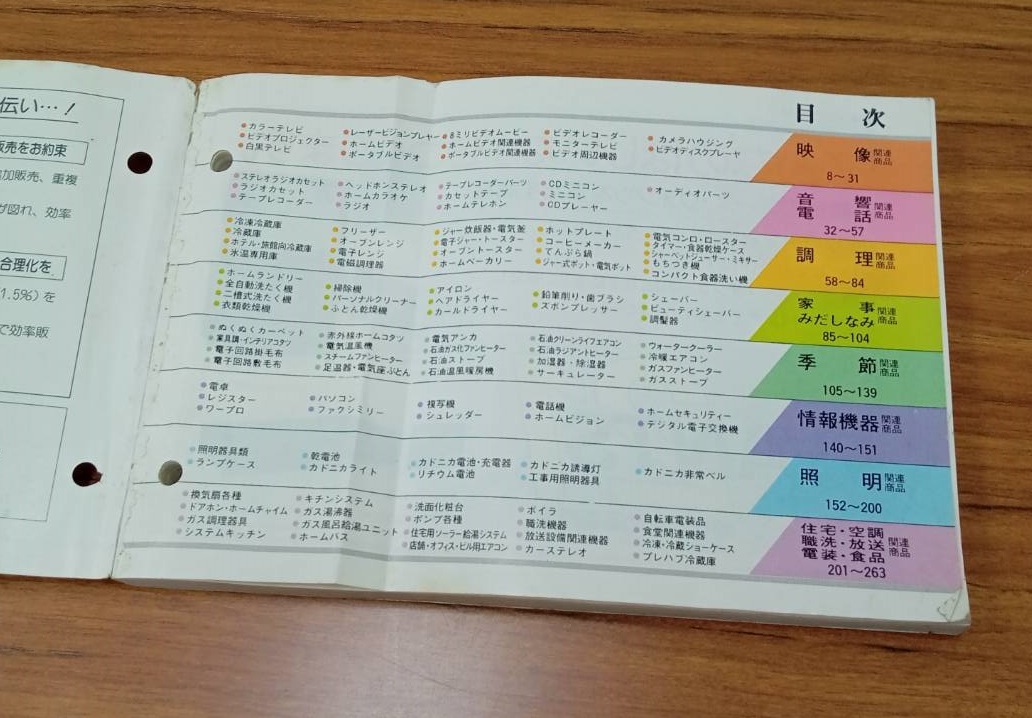 伝い…！
販売をお約束
加販売、重複
が図れ、効率
合理化を
1.5%）を
で効率販
目 次
カラーテレビ
ビデオプロジェクター
白黒テレビ
レーザービジョンプレヤー
ホームビデオ
ポータブルビデオ
8ミリビデオムービー
ホームビデオ関連機器
ポータブルビデオ関連機器
ビデオレコーダー
モニターテレビ
ビデオ周辺機器
カメラハウジング
ビデオディスクプレーヤ
映 像 関連商品
8〜31
ステレオラジオカセット
ラジオカセット
テープレコーダー
ヘッドホンステレオ
ホームカラオケ
ラジオ
テープレコーダーパーツ
カセットテープ
ホームテレホン
CDミニコン
ミニコン
CDプレーヤー
オーディオパーツ
音 響
電 話 関連商品
32〜57
冷凍冷蔵庫
冷蔵庫
ホテル・旅館向冷蔵庫
氷温専用庫
フリーザー
オーブンレンジ
電子レンジ
電磁調理器
ジャー炊飯器・電気釜
電子ジャー・トースター
オーブントースター
ホームベーカリー
ホットプレート
コーヒーメーカー
てんぷら鍋
ジャー式ポット・電気ポット
電気コンロ・ロースター
タイマー・食器乾燥ケース
シャーベットジューサー・ミキサー
もちつき機
コンパクト食器洗い機
調 理 関連商品
58〜84
ホームランドリー
全自動洗たく機
二槽式洗たく機
衣類乾燥機
掃除機
パーソナルクリーナー
ふとん乾燥機
アイロン
ヘアドライヤー
カールドライヤー
鉛筆削り・歯ブラシ
ズボンプレッサー
シェーバー
ビューティシェーバー
調髪器
家 事
みだしなみ 関連商品
85〜104
ぬくぬくカーペット
家具調・インテリアコタツ
電子回路掛毛布
電子回路敷毛布
赤外線ホームコタツ
電気温風機
スチームファンヒーター
足温器・電気座ぶとん
電気アンカ
石油ガス化ファンヒーター
石油ストーブ
石油温風暖房機
石油クリーンライフエアコン
石油ラジアントヒーター
加湿器・除湿器
サーキュレーター
ウォータークーラー
冷暖エアコン
ガスファンヒーター
ガスストーブ
季 節 関連商品
105〜139
電卓
レジスター
ワープロ
パソコン
ファクシミリー
複写機
シュレッダー
電話機
ホームビジョン
ホームセキュリティー
デジタル電子交換機
情報機器 関連商品
140〜151
照明器具類
ランプケース
乾電池
カドニカライト
カドニカ電池・充電器
リチウム電池
カドニカ誘導灯
工事用照明器具
カドニカ非常ベル
照 明 関連商品
152〜200
換気扇各種
ドアホン・ホームチャイム
ガス調理器具
システムキッチン
キチンシステム
ガス湯沸器
ガス風呂給湯ユニット
ホームバス
洗面化粧台
ポンプ各種
住宅用ソーラー給湯システム
店舗・オフィス・ビル用エアコン
ボイラ
職洗機器
放送設備関連機器
カーステレオ
自転車電装品
食堂関連機器
冷凍・冷蔵ショーケース
プレハブ冷蔵庫
住宅・空調
職洗・放送
電装・食品 関連商品
201〜263